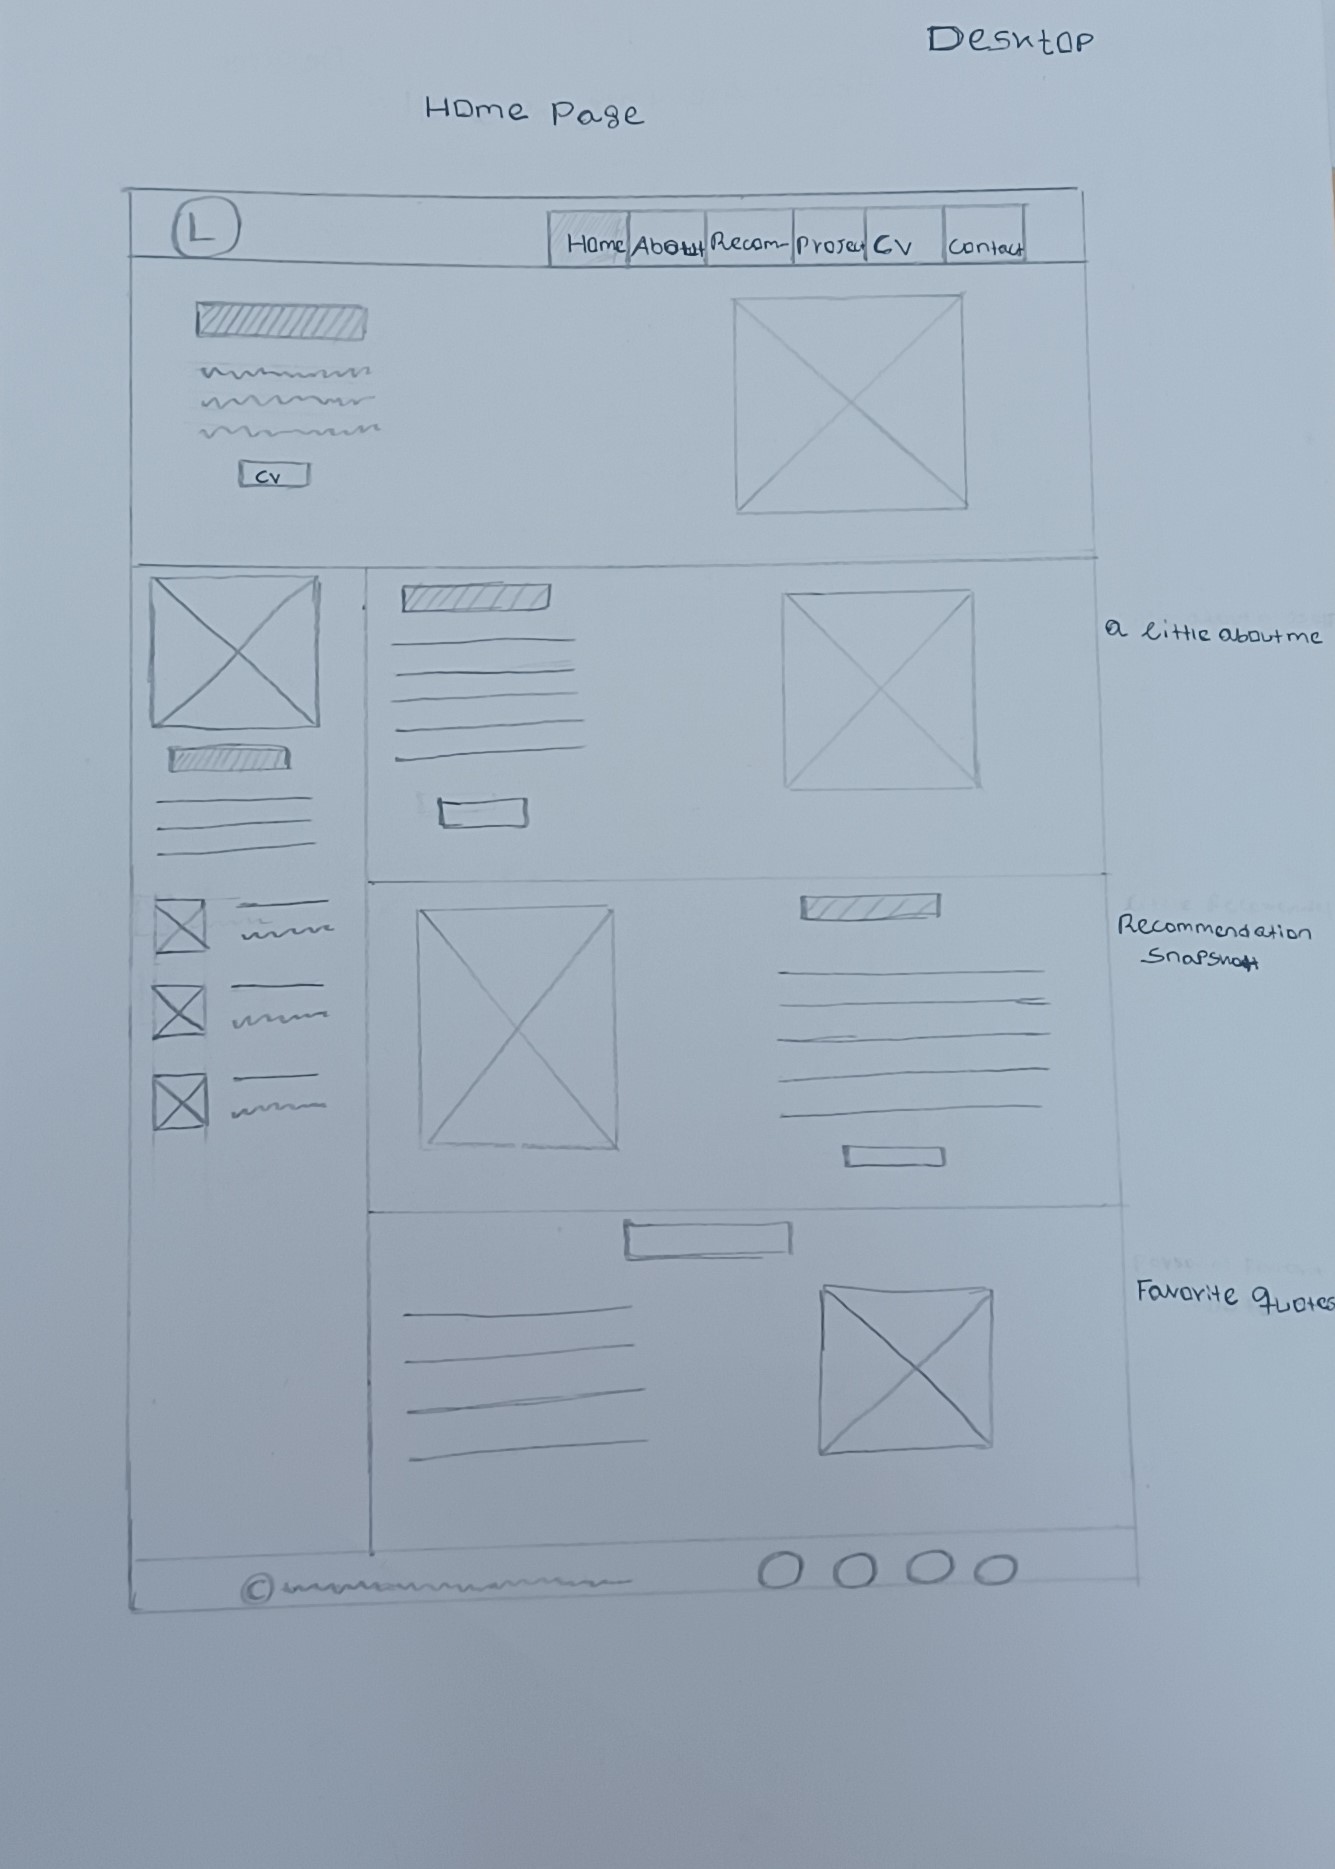 Desktop
Home Page
L
Home About Recom- Project CV Contact
CV
a little about me
Recommendation
Snapshot
Favorite quotes
©